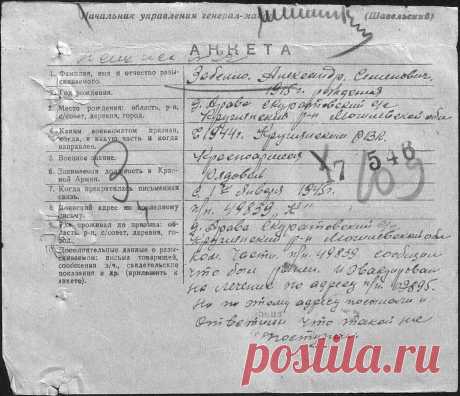 Начальник управления генерал-ма (Шавельский)
АНКЕТА
1. Фамилия, имя и отчество разыскиваемого. Забенко, Александр, Семенович,
2. Год рождения. 1915 г. рождения
3. Место рождения: область, р-н, с/совет, деревня, город. д. Брава Скуратовский с/с
Круглянский р-н Могилевской обл
4. Каким военкоматом призван, когда, в какую часть и когда направлен. С 1944 г. Круглянским РВК.
5. Военное звание. Красноармеец
6. Занимаемая должность в Красной Армии. Рядовой
7. Когда прекратилась письменная связь. С 17 января 1945 г.
8. Воинский адрес по последнему письму. п/п. 49839 "К"
9. Где проживал до призыва: область, р-н, с/совет, деревня, город. д. Брава Скуратовский с/с
Круглянский р-н Могилевской обл
10. Дополнительные данные о разыскиваемом: письма товарищей, сообщения в/ч, свидетельские показания и др. (приложить к анкете). Ком. части. п/п. 49839 сообщил
что был ранен. и Эвакуирован
на лечение по адресу п/п
Но по этому адресу
ответили что такой не
поступал
17548
109
postila.ru